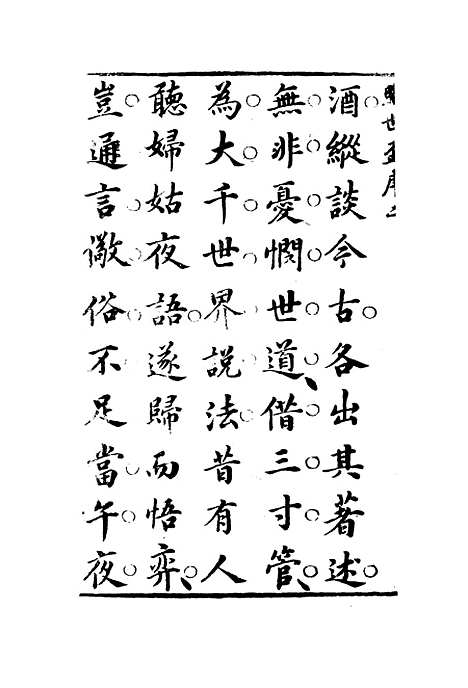 照世盃序二
酒縱談今古各出其著述
無非憂憫世道借三寸管
為大千世界說法昔有人
聽婦姑夜語遂歸而悟弈
豈邇言儆俗不足當午夜